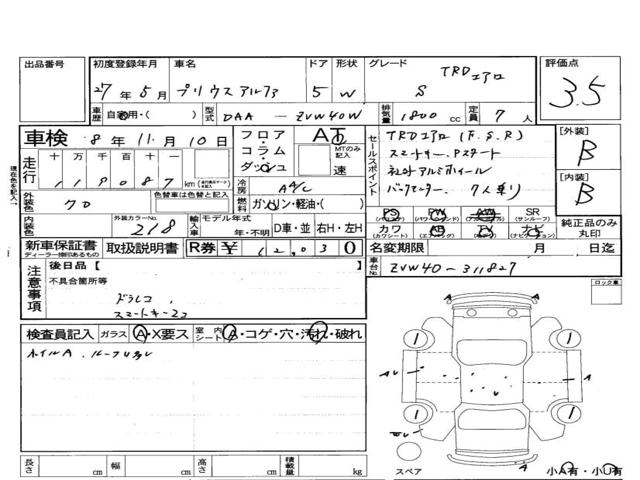 出品番号
初度登録年月 車名 ドア 形状 グレード 評価点
27年5月 プリウスアルファ 5 W S TRDエアロ 3.5
車歴 自家用・( ) 型式 DAA — ZVW40W 排気量 1800cc 定員 7人
車検 8年11月10日
フロア・コラム・ダッシュ AT MTのみ記入 速
セールスポイント
TRDエアロ (F.S.R)
スマートキー Pスタート
社外アルミホイール
バックモニター 7人乗り
[外装] B
[内装] B
走行 十 万 千 百 十 一
119087 km
冷房 AAC
外装色 クロ 色替車は色替と記入
燃料 ガソリン・軽油・( )
内装色 外装カラーNo. 218
輸入車 モデル年式 年・不明 D車・並 右H・左H
PS PW AW SR (サンルーフ)
カワ (カワシート) AB (エアバッグ) TV ナビ
純正品のみ丸印
新車保証書 ディーラー捺印あるもの 取扱説明書 R券 ¥12,030
名変期限 月 日迄
注意事項
後日品【 】
不具合箇所等
ドラレコ
スマートキー2コ
車台No. ZVW40-311827
ロック車
検査員記入 ガラス A・X要ス 室内シート A・コゲ・穴・汚れ・破れ
ホイルA ルーフUタル
A
1 1
AU A
1 1
A
長さ cm 幅 cm 高さ cm 積載量 kg
スペア 小A有・小U有
現在色を記入